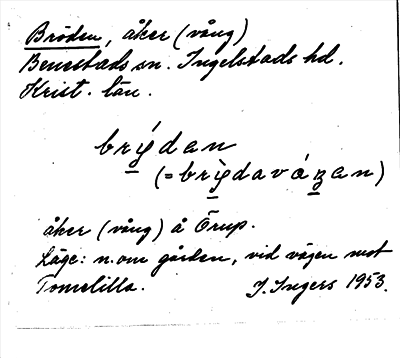 Bröden, åker (vång)
Benestads sn. Ingelstads hd.
Krist. län.
brýdan
(= brỳdaváʒan)
åker (vång) å Örup.
Läge: n. om gården, vid vägen mot
Tomelilla. I. Ingers 1953.